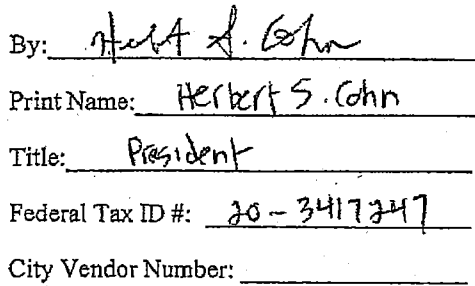 By: Herbt S. Cohn
Print Name: Herbert S. Cohn
Title: President
Federal Tax ID #: 20-3417247
City Vendor Number: